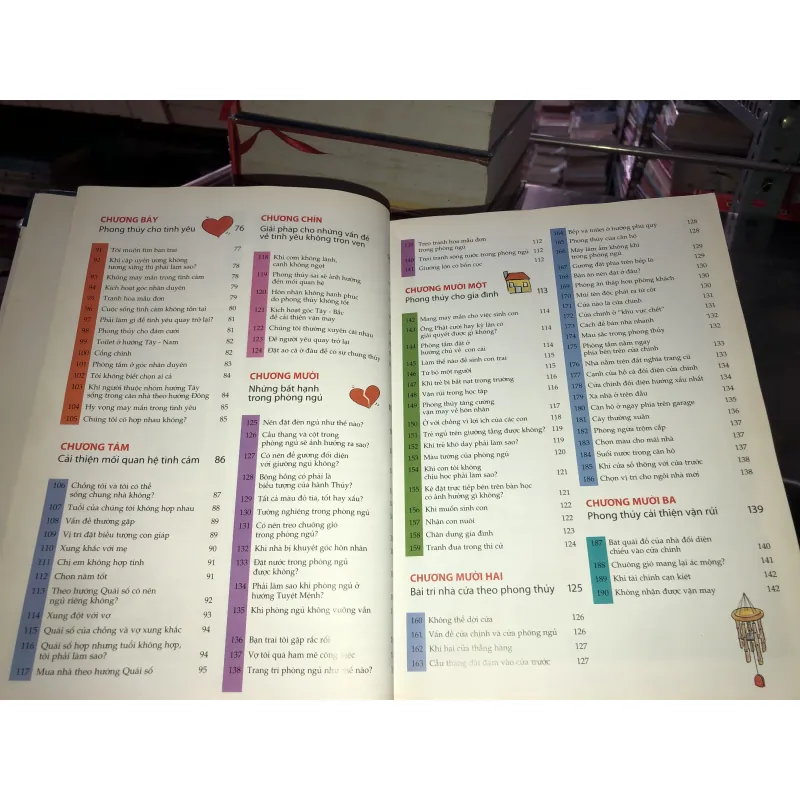 CHƯƠNG BẢY
Phong thủy cho tình yêu 76
91 Tôi muốn tìm bạn trai 77
92 Khi cặp uyên ương không
tương xứng thì phải làm sao? 78
93 Không may mắn trong tình cảm 78
94 Kích hoạt góc nhân duyên 79
95 Tranh hoa mẫu đơn 79
96 Cuộc sống tình cảm không tồn tại 80
97 Phải làm gì để tình yêu quay trở lại? 81
98 Phong thủy cho đám cưới 81
99 Toilet ở hướng Tây - Nam 82
100 Cổng chính 82
101 Phòng tắm ở góc nhân duyên 83
102 Tôi không biết chọn ai cả 84
103 Khi người thuộc nhóm hướng Tây
sống trong căn nhà theo hướng Đông 84
104 Hy vọng may mắn trong tình yêu 85
105 Chúng tôi có hợp nhau không? 85
CHƯƠNG TÁM
Cải thiện mối quan hệ tình cảm 86
106 Chồng tôi và tôi có thể
sống chung nhà không? 87
107 Tuổi của chúng tôi không hợp nhau 88
108 Vấn đề thường gặp 89
109 Vị trí đặt biểu tượng con giáp 89
110 Xung khắc với mẹ 90
111 Chị em không hợp tính 91
112 Chọn năm tốt 91
113 Theo hướng Quái số có nên
ngủ riêng không? 92
114 Xung đột với vợ 93
115 Quái số của chồng và vợ xung khắc 94
116 Quái số hợp nhưng tuổi không hợp,
tôi phải làm sao? 94
117 Mua nhà theo hướng Quái số 95
CHƯƠNG CHÍN
Giải pháp cho những vấn đề
về tình yêu không trọn vẹn
118 Khi cơm không lành,
canh không ngọt
119 Phong thủy sai sẽ ảnh hưởng
đến mối quan hệ
120 Hôn nhân không hạnh phúc
do phong thủy không tốt
121 Kích hoạt góc Tây - Bắc
để cải thiện vận may
122 Chúng tôi thường xuyên cãi nhau
123 Để người yêu quay trở lại
124 Đặt ao cá ở đâu để có sự chung thủy
CHƯƠNG MƯỜI
Những bất hạnh
trong phòng ngủ
125 Nên đặt đèn ngủ như thế nào?
126 Cầu thang và cột trong
phòng ngủ sẽ ảnh hưởng ra sao?
127 Có nên để gương đối diện
với giường ngủ không?
128 Bông hồng có phải là
biểu tượng của hành Thủy?
129 Tất cả màu đỏ tía, tốt hay xấu?
130 Tường nghiêng trong phòng ngủ
131 Có nên treo chuông gió
trong phòng ngủ?
132 Khi nhà bị khuyết góc hôn nhân
133 Đặt nước trong phòng ngủ
được không?
134 Phải làm sao khi phòng ngủ ở
hướng Tuyệt Mệnh?
135 Khi phòng ngủ không vuông vắn
136 Bạn trai tôi gặp rắc rối
137 Vợ tôi quá ham mê công việc
138 Trang trí phòng ngủ như thế nào?
139 Treo tranh hoa mẫu đơn
trong phòng ngủ 112
140 Treo tranh sông nước trong phòng ngủ 112
141 Gương lớn có bồn cọc 112
CHƯƠNG MƯỜI MỘT
Phong thủy cho gia đình 113
142 Mang may mắn cho việc sinh con 114
143 Ông Phật cười hay kỳ lân có
giải quyết được gì không? 114
144 Phòng tắm đặt ở
hướng chủ về con cái 114
145 Làm thế nào để sinh con trai 115
146 Từ bỏ một người 115
147 Khi trẻ bị bắt nạt trong trường 116
148 Vận rủi trong học tập 116
149 Phong thủy tăng cường
vận may về hôn nhân 117
150 Ở với chồng vì lợi ích của các con 118
151 Trẻ ngủ trên giường tầng được không? 119
152 Khi trẻ khó dạy phải làm sao? 119
153 Màu tường của phòng ngủ 120
154 Khi con tôi không
chịu học phải làm sao? 121
155 Kệ đặt trực tiếp bên trên bàn học
có ảnh hưởng gì không? 121
156 Khi muốn sinh con 122
157 Nhận con nuôi 122
158 Chân dung gia đình 123
159 Tranh đua trong thi cử 124
CHƯƠNG MƯỜI HAI
Bài trí nhà cửa theo phong thủy 125
160 Không thể dời cửa 126
161 Vấn đề của chính và cửa phòng ngủ 126
162 Khi hai cửa thẳng hàng 127
163 Cầu thang đặt đâm vào cửa trước 127
164 Bếp và toilet ở hướng phú quý 128
165 Phong thủy của căn hộ 128
166 Máy làm ấm không khí
trong phòng ngủ 128
167 Gương đặt phía trên bếp lò 129
168 Bàn ăn nên đặt ở đâu? 130
169 Phòng ăn thấp hơn phòng khách 130
170 Mũi tên độc phát ra từ cột 130
171 Cửa nào là cửa chính 131
172 Cửa chính ở "khu vực chết" 131
173 Cách để bán nhà nhanh 132
174 Màu sắc trong phong thủy 132
175 Phòng tắm nằm ngay
phía bên trên cửa chính 133
176 Nhà nằm trên đất nghĩa trang cũ 133
177 Cạnh của hồ cá đối diện cửa chính 134
178 Cửa chính đối diện hướng xấu nhất 134
179 Xà nhà ở trên đầu 134
180 Căn hộ ở ngay phía trên garage 134
181 Cây thường xuân 136
182 Phòng ngựa trệm cắp 137
183 Chọn màu cho mái nhà 137
184 Suối nước trong căn hộ 137
185 Khi cửa sổ thông với cửa trước 138
186 Chọn vị trí cho ngôi nhà mới 138
CHƯƠNG MƯỜI BA
Phong thủy cải thiện vận rủi 139
187 Bát quái đồ của nhà đối diện
chiếu vào cửa chính 140
188 Chuông gió mang lại ác mộng? 141
189 Khi tài chính cạn kiệt 142
190 Không nhận được vận may 142